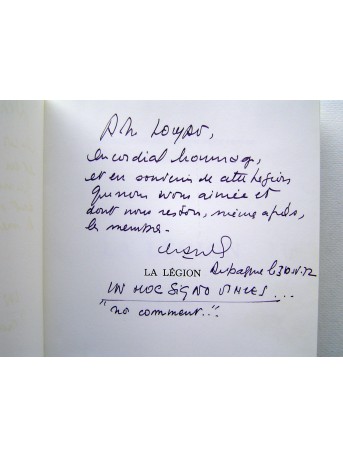 A M. Loupo,
en cordial hommage,
et en souvenir de cette Légion
que nous avons aimée et
dont nous restons, même après,
les membres.
LA LÉGION
le 30.IV.72
IN HOC SIGNO VINCES...
"no comment"...